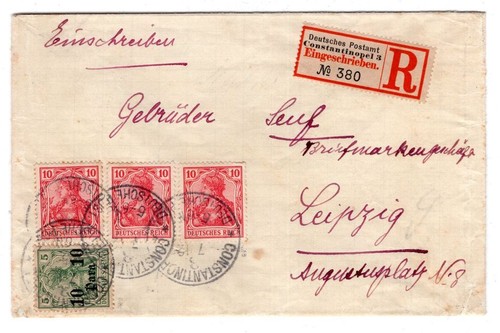 Einschreiben
Deutsches Postamt
Constantinopel 3
Eingeschrieben.
№ 380
R
Gebrüder Senf
Briefmarkengeschäft
Leipzig
Augustusplatz No 8
10 10
DEUTSCHES REICH
10 10
DEUTSCHES REICH
10 10
DEUTSCHES REICH
5
10 Para 10
CONSTANTINOPEL
DEUTSCHE
CONSTANTINOPEL